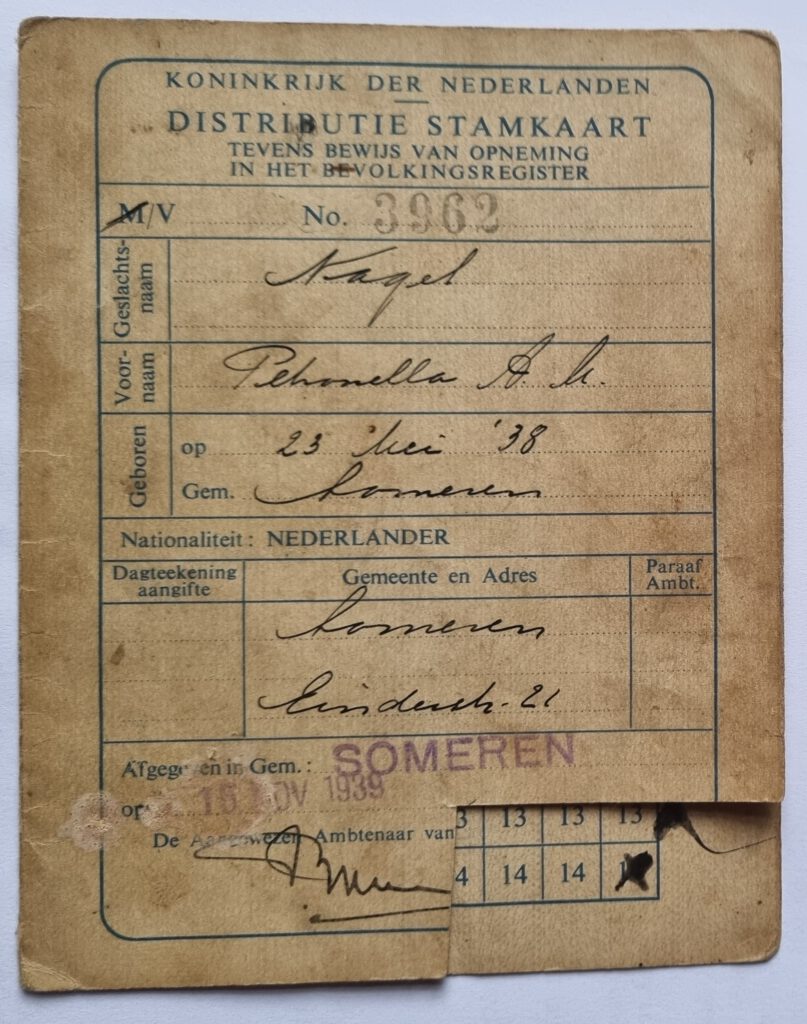 KONINKRIJK DER NEDERLANDEN
DISTRIBUTIE STAMKAART
TEVENS BEWIJS VAN OPNEMING
IN HET BEVOLKINGSREGISTER
M/V No. 3962
Geslachts-
naam
Nagel
Voor-
naam
Petronella A. M.
Geboren
op 23 Mei '38
Gem. Someren
Nationaliteit: NEDERLANDER
Dagteekening
aangifte
Gemeente en Adres
Paraaf
Ambt.
Someren
Einderstr. 21
Afgegeven in Gem.: SOMEREN
op 15 NOV 1939
De Aangewezen Ambtenaar van
3 13 13 13
4 14 14